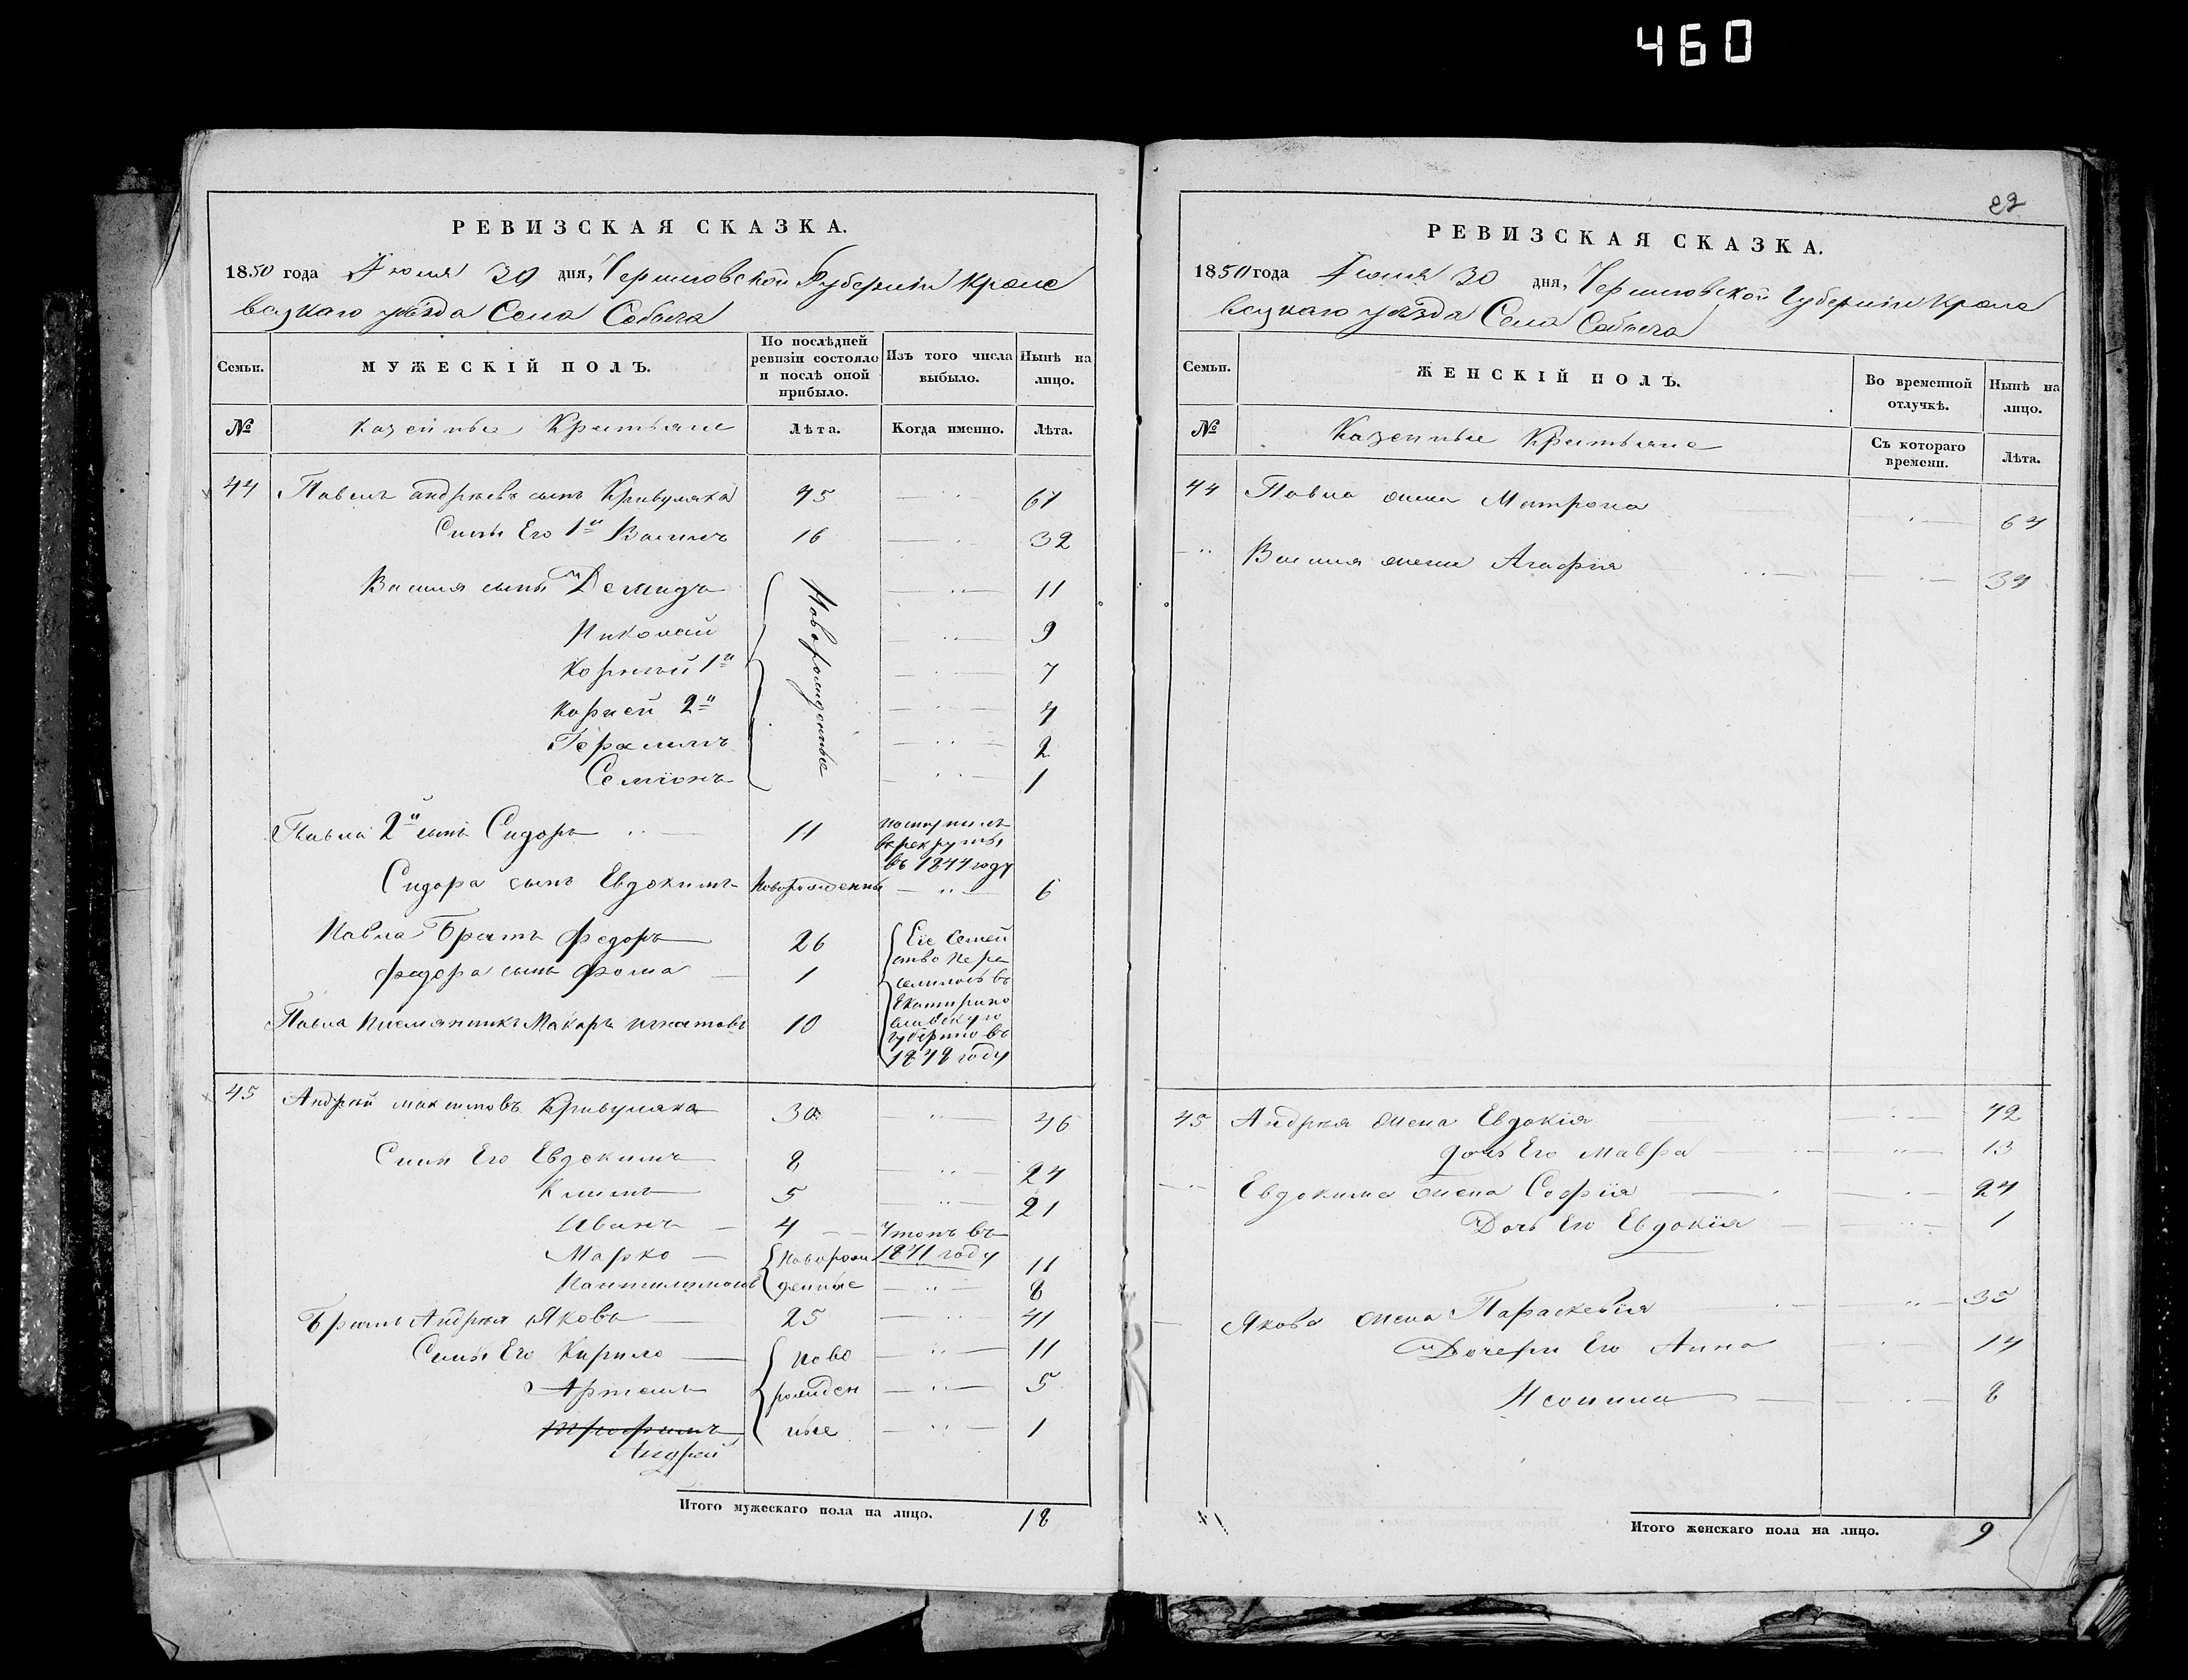 460
РЕВИЗСКАЯ СКАЗКА.
1850 года Июня 30 дня, Черниговской Губерніи Кроле
вецкаго уѣзда Села Собыча
Семьи.
МУЖЕСКІЙ ПОЛЪ.
По послѣдней ревизіи состояло и послѣ оной прибыло.
Изъ того числа выбыло.
Нынѣ на лицо.
№
Казенные Крестьяне
Лѣта.
Когда именно.
Лѣта.
44 Павелъ андреевъ сынъ Кривуляка 45 67
Сынъ Его 1й Василъ 16 32
Василя сыны Демидъ Новорожденные 11
Николай 9
Корнѣй 1й 7
Корнѣй 2й 4
Герасимъ 2
Семіонъ 1
Павла 2й сынъ Сидоръ 11 поступилъ
в рекруты
въ 1844 году
Сидора сынъ Евдокимъ Новорожденны 6
Павла Братъ Федоръ 26 Еіе Семей
ство пере
Федора сынъ Фома 1 селилось въ
Екатирино
славскую
Павла Племянникъ Макаръ Игнатовъ 10 губернію въ
1848 году
45 Андрей максимовъ Кривуляка 30 46
Сыны Его Евдокимъ 8 24
Климъ 5 21
Иванъ 4 Утопъ въ
1841 году
МаркоНоворож 11
Пантилимонъ денные 8
Братъ Андрея Яковъ 25 41
Сыны Его Кирило ново 11
Артемъ рожден 5
Трофимъ ные 1
Андрей
Итого мужескаго пола на лицо. 18
22
РЕВИЗСКАЯ СКАЗКА.
1850 года Июня 30 дня, Черниговской Губерніи Кроле
вецкаго уѣзда Села Собыча
Семьи.
ЖЕНСКІЙ ПОЛЪ.
Во временной отлучкѣ.
Нынѣ на лицо.
№
Казенные Крестьяне
Съ котораго времени.
Лѣта.
44 Павла жена Матрона 64
Василя жена Агафія 34
45 Андрея жена Евдокія 42
дочь Его Мавра 13
Евдокима жена Софія 24
Дочь Его Евдокія 1
Якова жена Параскевія 35
Дочери Его Анна 14
Ксенія 8
Итого женскаго пола на лицо. 9